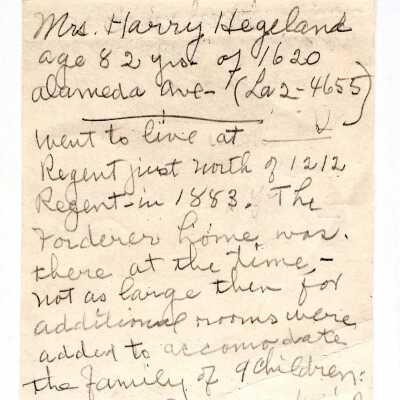 Mrs. Harry Hegeland
age 82 yrs. of 1620
alameda ave- (La 2-4655)
Went to live at
Regent just north of 1212
Regent-in 1883. The
Forderer home was.
there at the time,-
not as large then for
additional rooms were
added to accomodate
the family of 9 children: